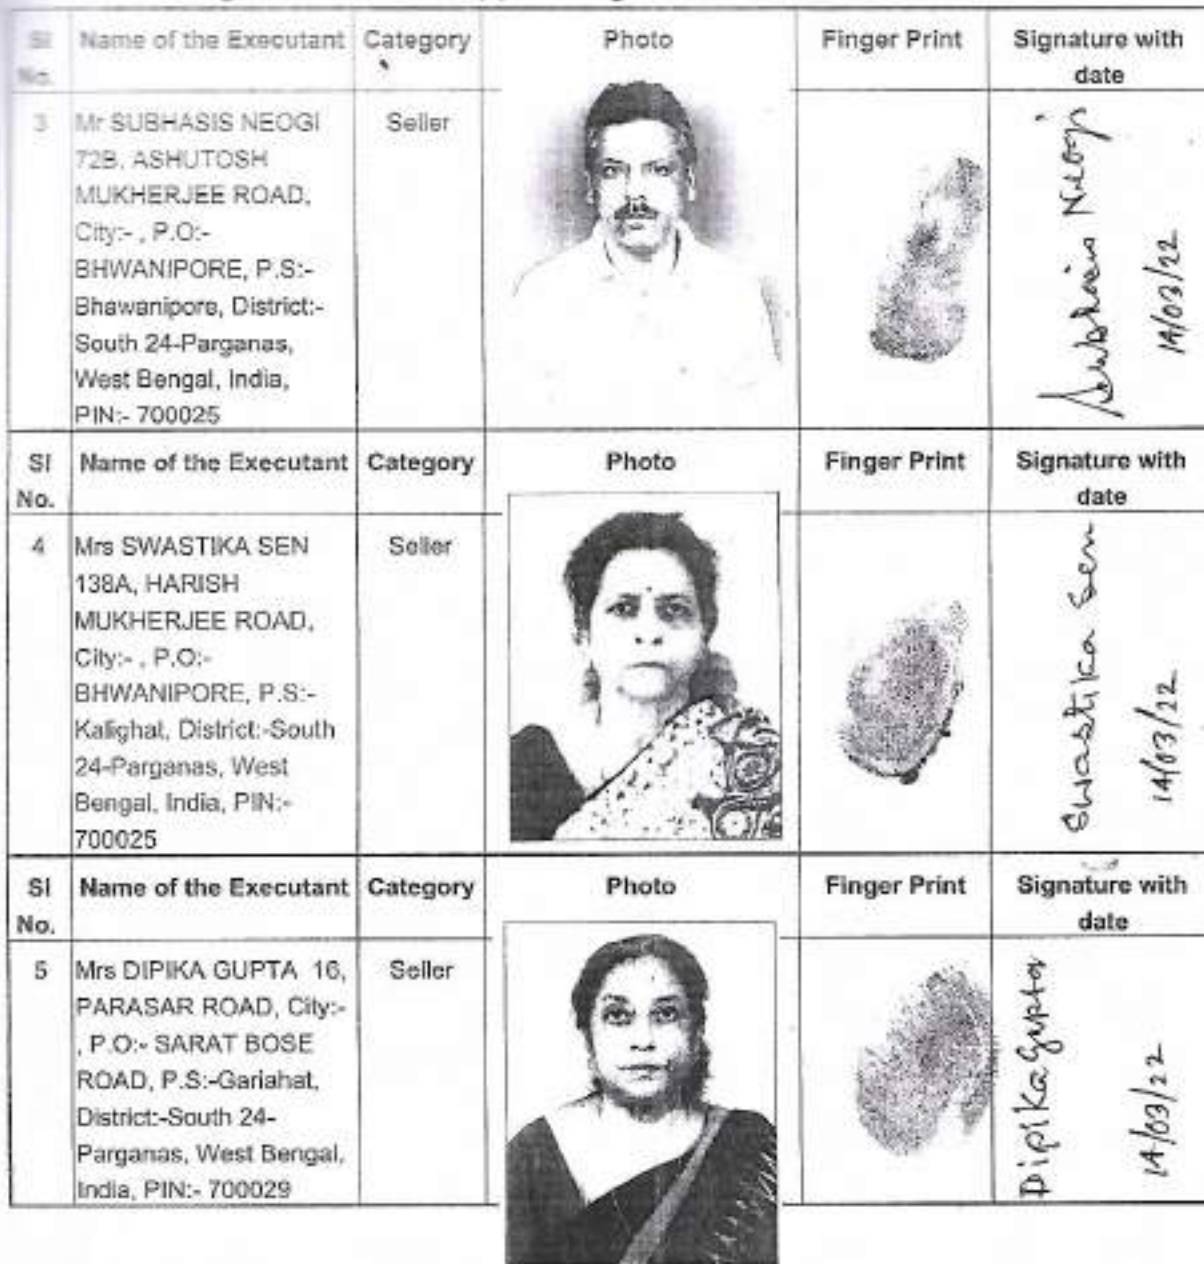 SI Name of the Executant Category Photo Finger Print Signature with
No. date
3 Mr SUBHASIS NEOGI Seller
72B, ASHUTOSH
MUKHERJEE ROAD,
City:- , P.O:-
BHWANIPORE, P.S:-
Bhawanipore, District:-
South 24-Parganas,
West Bengal, India,
PIN:- 700025
Subhasis Neogi
14/03/22
SI Name of the Executant Category Photo Finger Print Signature with
No. date
4 Mrs SWASTIKA SEN Seller
138A, HARISH
MUKHERJEE ROAD,
City:- , P.O:-
BHWANIPORE, P.S:-
Kalighat, District:-South
24-Parganas, West
Bengal, India, PIN:-
700025
Swastika Sen
14/03/22
SI Name of the Executant Category Photo Finger Print Signature with
No. date
5 Mrs DIPIKA GUPTA 16, Seller
PARASAR ROAD, City:-
, P.O:- SARAT BOSE
ROAD, P.S:-Gariahat,
District:-South 24-
Parganas, West Bengal,
India, PIN:- 700029
Dipika Gupta
14/03/22